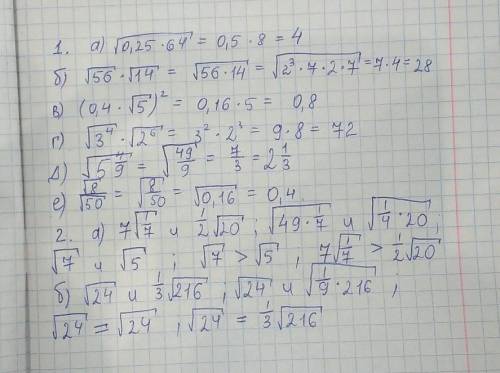 1. а) √(0,25·64) = 0,5·8 = 4
б) √56·√14 = √(56·14) = √(2³·7·2·7) = 7·4 = 28
в) (0,4·√5)² = 0,16·5 = 0,8
г) √3⁴·√2⁶ = 3²·2³ = 9·8 = 72
д) √(5 4/9) = √(49/9) = 7/3 = 2 1/3
е) √8/√50 = √(8/50) = √0,16 = 0,4.
2. а) 7√(1/7) и 1/2√20; √(49·1/7) и √(1/4·20);
√7 и √5 ; √7 > √5 , 7√(1/7) > 1/2√20
б) √24 и 1/3√216 ; √24 и √(1/9·216) ,
√24 = √24 , √24 = 1/3√216